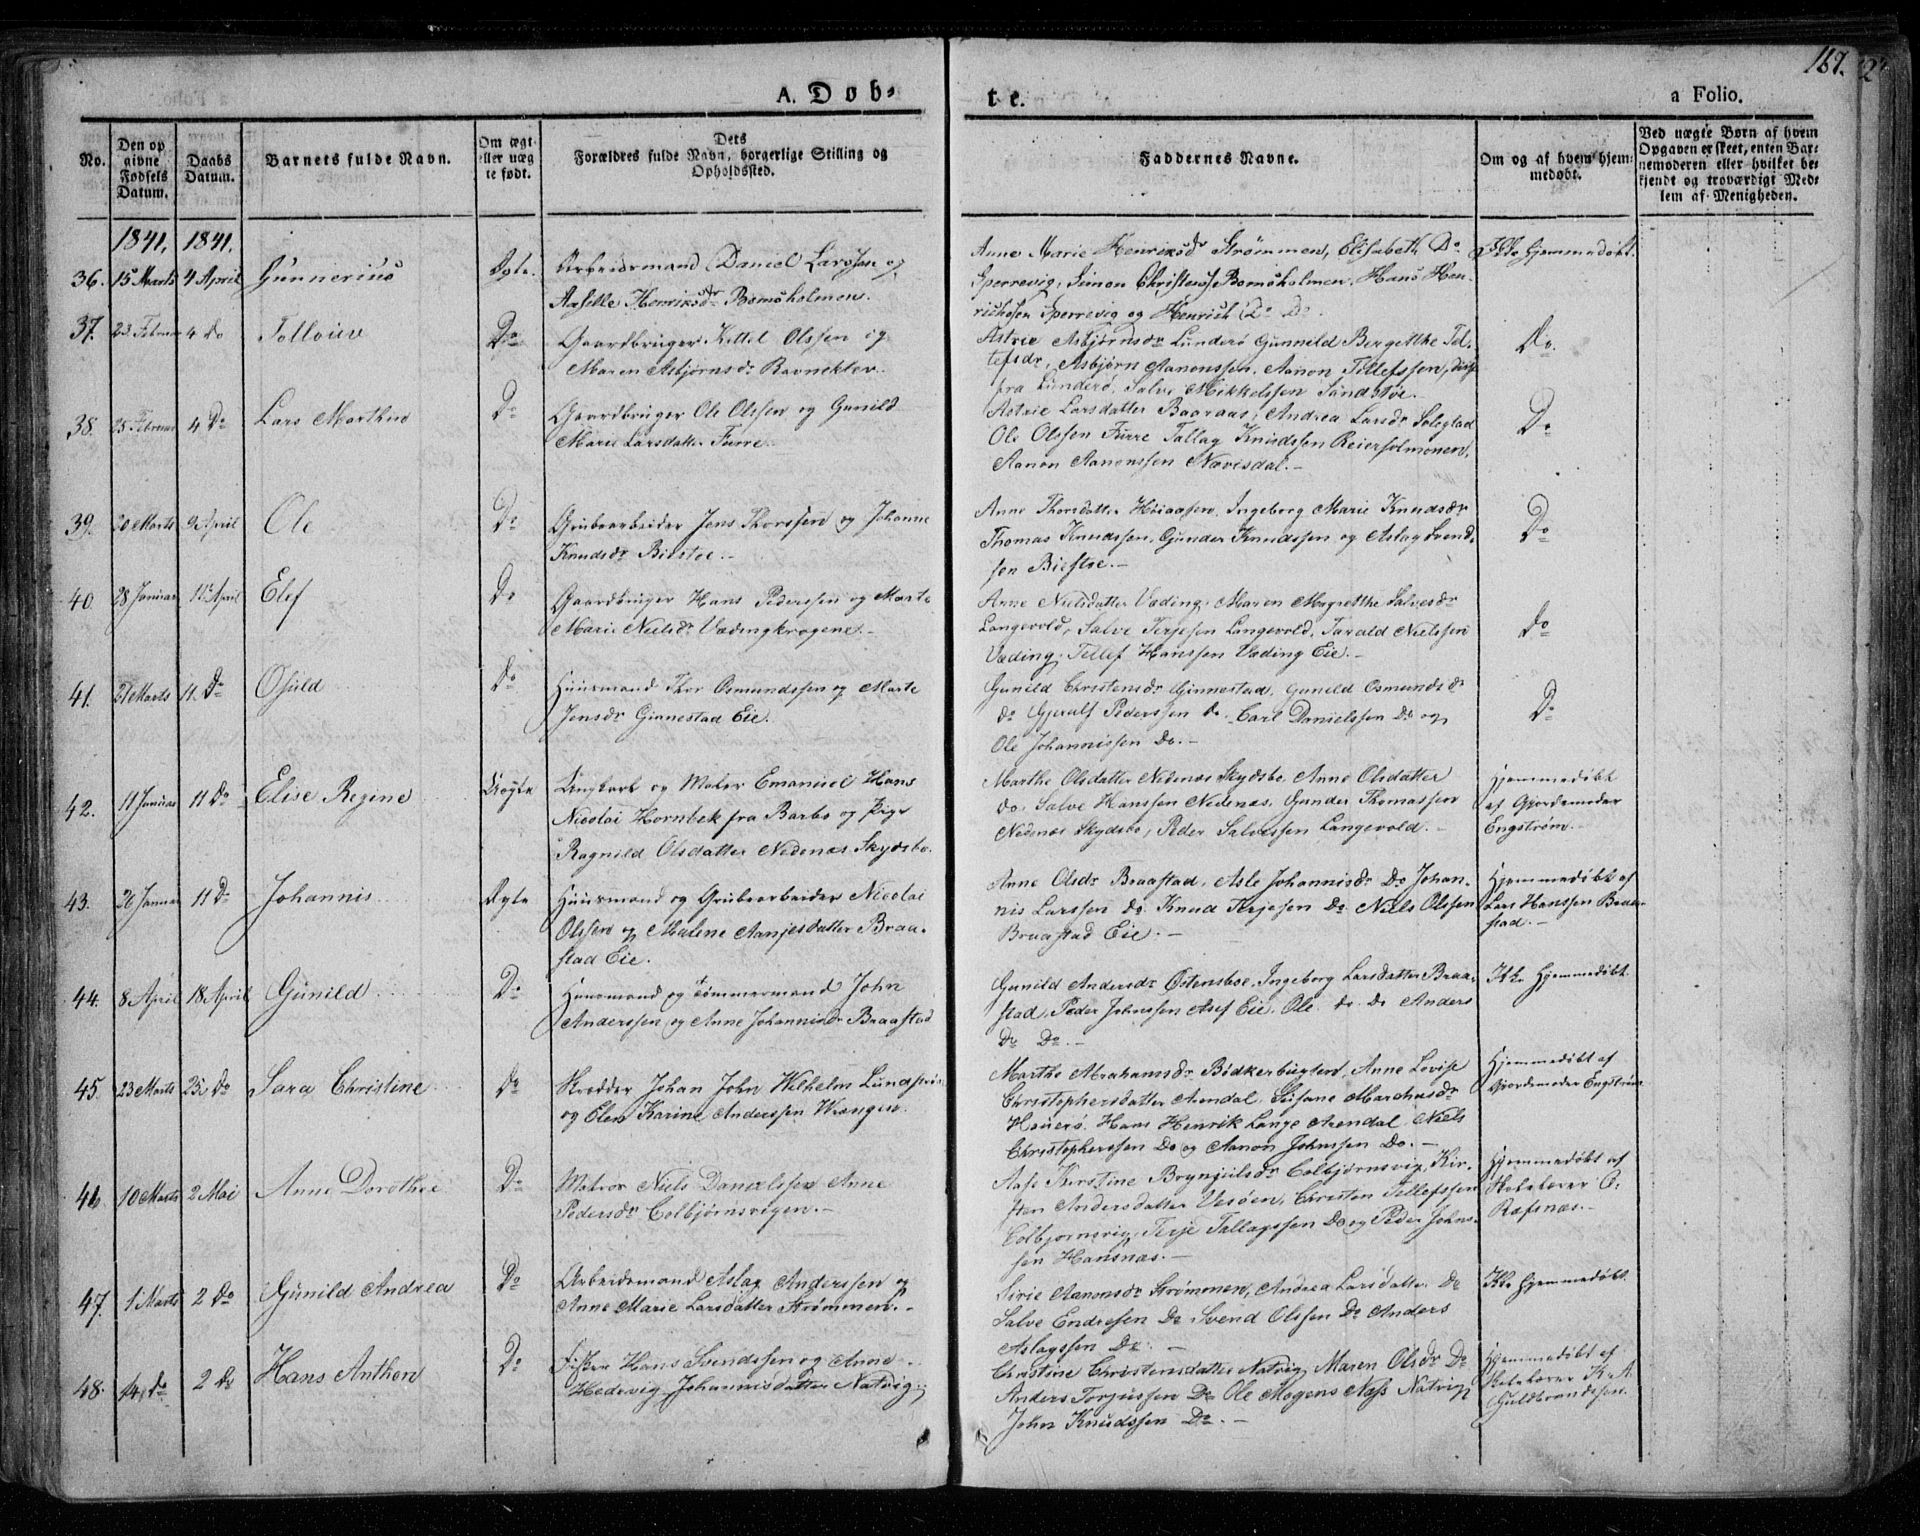 167.
A. Døb-
te.
a Folio.
No.
Den op
givne
Fødsels
Datum.
Daabs
Datum.
Barnets fulde Navn.
Om ægt
eller uæg
te født.
Dets
Forældres fulde Navn, borgerlige Stilling og
Opholdssted.
Faddernes Navne.
Om og af hvem hjem-
medøbt.
Ved uægte Børn af hvem
Opgaven er skeet, enten Bar-
nemoderen eller hvilket be-
kjendt og troværdigt Med-
lem af Menigheden.
1841. 1841.
36. 15 Marts 4 April Gunnerius Ægte. Arbeidsmand Daniel Larssen og
Henriksdr Bomsholmen.
Anne Marie Henriksdr Strømmen, Elisabeth Do
Sperrevig, Simon Christens. Bomsholmen, Hans Hen-
richsen Sperrevig og Henrich Do Do.
Ikke hjemmedøbt.
37. 23 Februar 4 do Tolloiv Do Gaardbruger Kittel Olssen og
Maren Asbjørnsdr Ravneklev.
Astrie Asbjørnsdr Lunderø Gunnild Bergitthe Tel-
lefsdr, Asbjørn Aanonssen, Aanon Tellefssen,
fra Lunderø, Salve Mikkelssen Sandstøe.
Do.
38. 25 Februar 4 Do Lars Marthin Do Gaardbruger Ole Olssen og Gunild
Marie Larsdatter Furre.
Astrie Larsdatter Baaraas, Andrea Larsdr Solegtad
Ole Olssen Furre Tallag Knudssen Reiersolmonen,
Aanon Aanonssen Nævisdal.-
Do
39. 20 Marts 9 April Ole Do Grubearbeider Jens Thorssen og Johanne
Knudsdr Biestøe.-
Anne Thorsdatter Høiaasen, Ingeborg Marie Knudsdr
Thomas Knudssen, Gunder Knudssen og Aslag Svend-
sen Biestøe.-
Do
40. 28 Januar 11 April Elef Do Gaardbruger Hans Pederssen og Marte
Marie Nielsdr Vædingkrogene.-
Anne Nielsdatter Væding, Maren Magrethe Salvesdr
Langevold, Salve Terjesen Langevold, Tarald Nielssen
Væding, Tellef Hanssen Væding Eie.-
Do
41. 21 Marts 11. Do Osuld Do Huusmand Thor Osmundssen og Marte
Jensdr Ginnestad Eie.
Gunild Christensdr Ginnestad, Gunild Osmundsdr
do Gjerulf Pederssen do. Carl Danielssen Do og
Ole Johannissen Do.-
Do
42. 11 Januar 11 Do Elise Regine Uægte Ungkarl og Maler Emanuel Hans
Nicolai Hornbek fra Barbo og Pige
Ragnild Olsdatter Nedenæs Skydsbo.
Marthe Olsdatter Nedenæs Skydsbo, Anne Olsdatter
do. Salve Hanssen Nedenæs, Gunder Thomassen
Nedenæs Skydsbo, Peder Salvessen Langevold.-
Hjemmedøbt
af Gjordemoder
Engstrøm.-
43. 26 Januar 11 Do Johannis Ægte Huusmand og Grubearbeider Nicolai
Olssen og Malene Aanjesdatter Braa-
stad Eie.
Anne Olsdr Braastad, Asle Johannisdr Do Johan-
nis Larssen do. Knud Terjesen Do Niels Olssen
Braastad Eie.-
Hjemmedøbt af
Lars Hanssen Braa-
stad.
44. 8 April 18 April Gunild Do Huusmand og Tømmermand John
Anderssen og Anne Johannisdr Braastad
Gunild Andersdr Østensboe, Ingeborg Larsdatter Braa-
stad, Peder Johnssen Asef Eie, Ole do Do Anders
Do Do.-
Ikke Hjemmedøbt
45. 23 Marts 25 Do Sara Christine Do Skredder Johan John Wilhelm Lundstrøm
og Elen Karine Anderssen Wrængen.
Marthe Abrahamsdr Bødkerbugten, Anne Lovise
Christophersdatter Arendal, Susane Marchusdr
Haverø, Hans Henrik Lange Arendal, Niels
Christopherssen Do og Aanon Johnssen Do.-
Hjemmedøbt af
Gjordemoder Engstrøm
46. 10 Marts 2 Mai Anne Dorothee Do Matros Niels Danielssen Anne
Pedersdr Colbjørnsvigen.-
Aase Kirstine Brynjulsdr Colbjørnsvig, Kir-
sten Andersdatter Vesøen, Christen Tellefssen
Colbjornsvig, Terje Tallagssen Do og Peder Johns-
sen Hansnæs.-
Hjemmedøbt af
Skolelærer O.
Ræfsnæs.-
47. 1 Marts 2 Do Gunild Andrea Do Arbeidsmand Aslag Anderssen og
Anne Marie Larsdatter Strømmen.-
Sirie Aanonsdr Strømmen, Andrea Larsdatter Do
Salve Endresen Do Svend Olssen Do Anders
Aslagssen Do.-
Ikke hjemmedøbt
48. 14 Do 2 Do Hans Anthon Do Fisker Hans Svendssen og Anne
Hedevig Johannisdatter Natvig.
Christine Christensdatter Natvig, Maren Olsdr Do
Anders Torjussen Do Ole Mogens Næss Natvig
John Knudssen Do.-
Hjemmedøbt af
Skolelærer K. A.
Guldbrandssen.